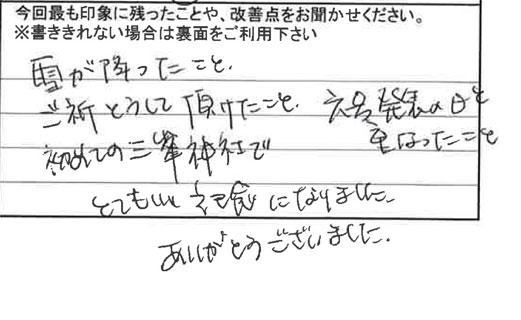 今回最も印象に残ったことや、改善点をお聞かせください。
※書ききれない場合は裏面をご利用下さい
雪が降ったこと.
ご祈とうして頂けたこと. 元号発表の日と
重なったこと
初めての三峯神社で
とてもいい記念になりました.
ありがとうございました.